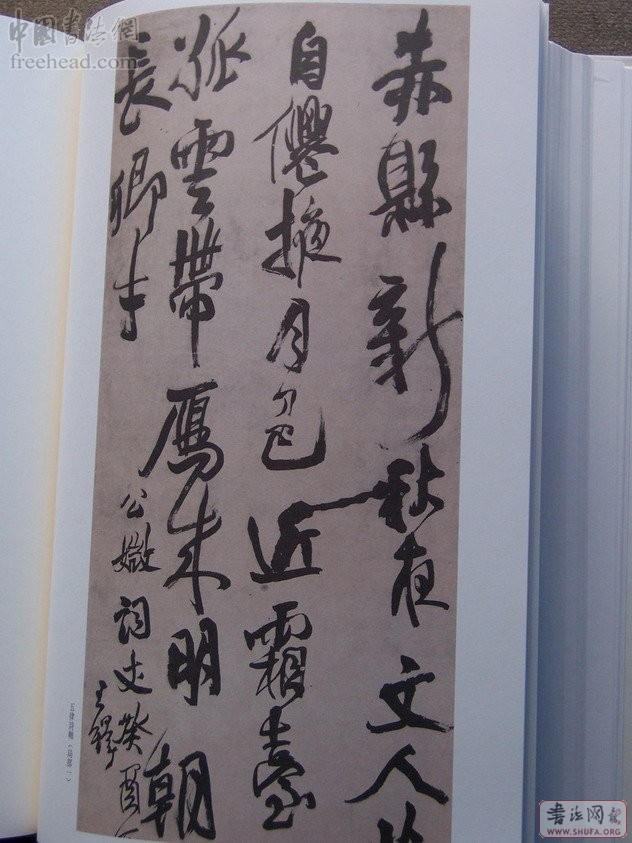 中国書法網
freehead.com
赤縣新秋夜文人
自僊掖月色近霜臺
孤雲帶鴈來明朝
長卿才
公媺詞丈癸酉
王鐸
五律詩軸（局部一）
书法网
WWW.SHUFA.ORG